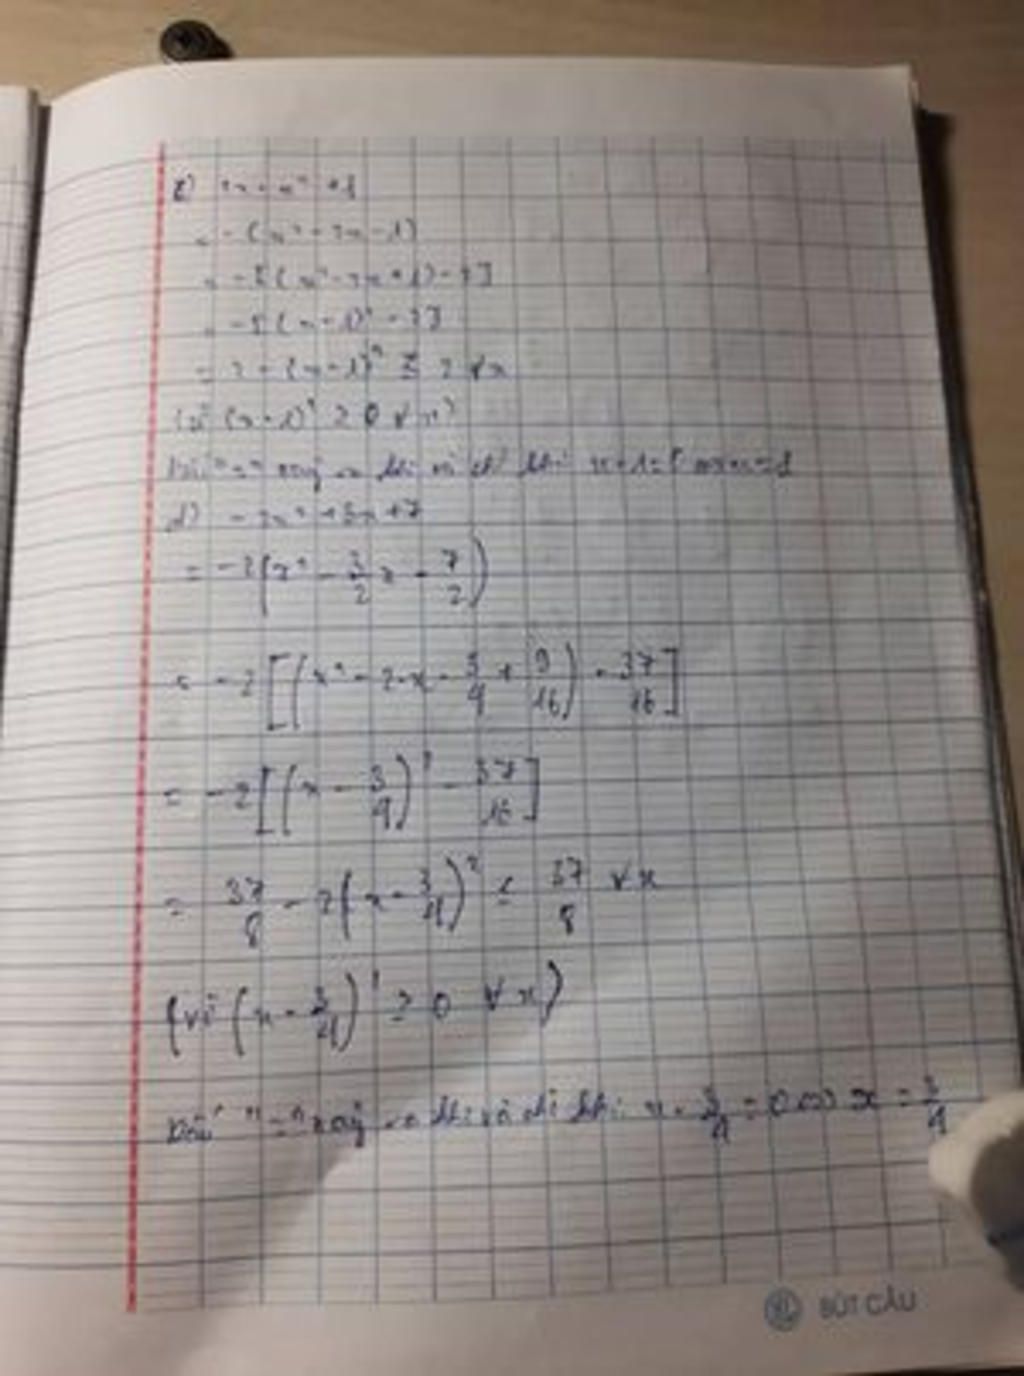 c) 2x - x² + 1
= -(x² - 2x - 1)
= -[(x² - 2x + 1) - 2]
= -[(x - 1)² - 2]
= 2 - (x - 1)² ≤ 2 ∀x
(vì (x - 1)² ≥ 0 ∀x)
Dấu "=" xảy ra khi và chỉ khi x - 1 = 0 <=> x = 1
d) -2x² + 3x + 7
= -2(x² - 3/2 x - 7/2)
= -2[(x² - 2·x·3/4 + 9/16) - 37/16]
= -2[(x - 3/4)² - 37/16]
= 37/8 - 2(x - 3/4)² ≤ 37/8 ∀x
(vì (x - 3/4)² ≥ 0 ∀x)
Dấu "=" xảy ra khi và chỉ khi x - 3/4 = 0 <=> x = 3/4
BÚT CÂU